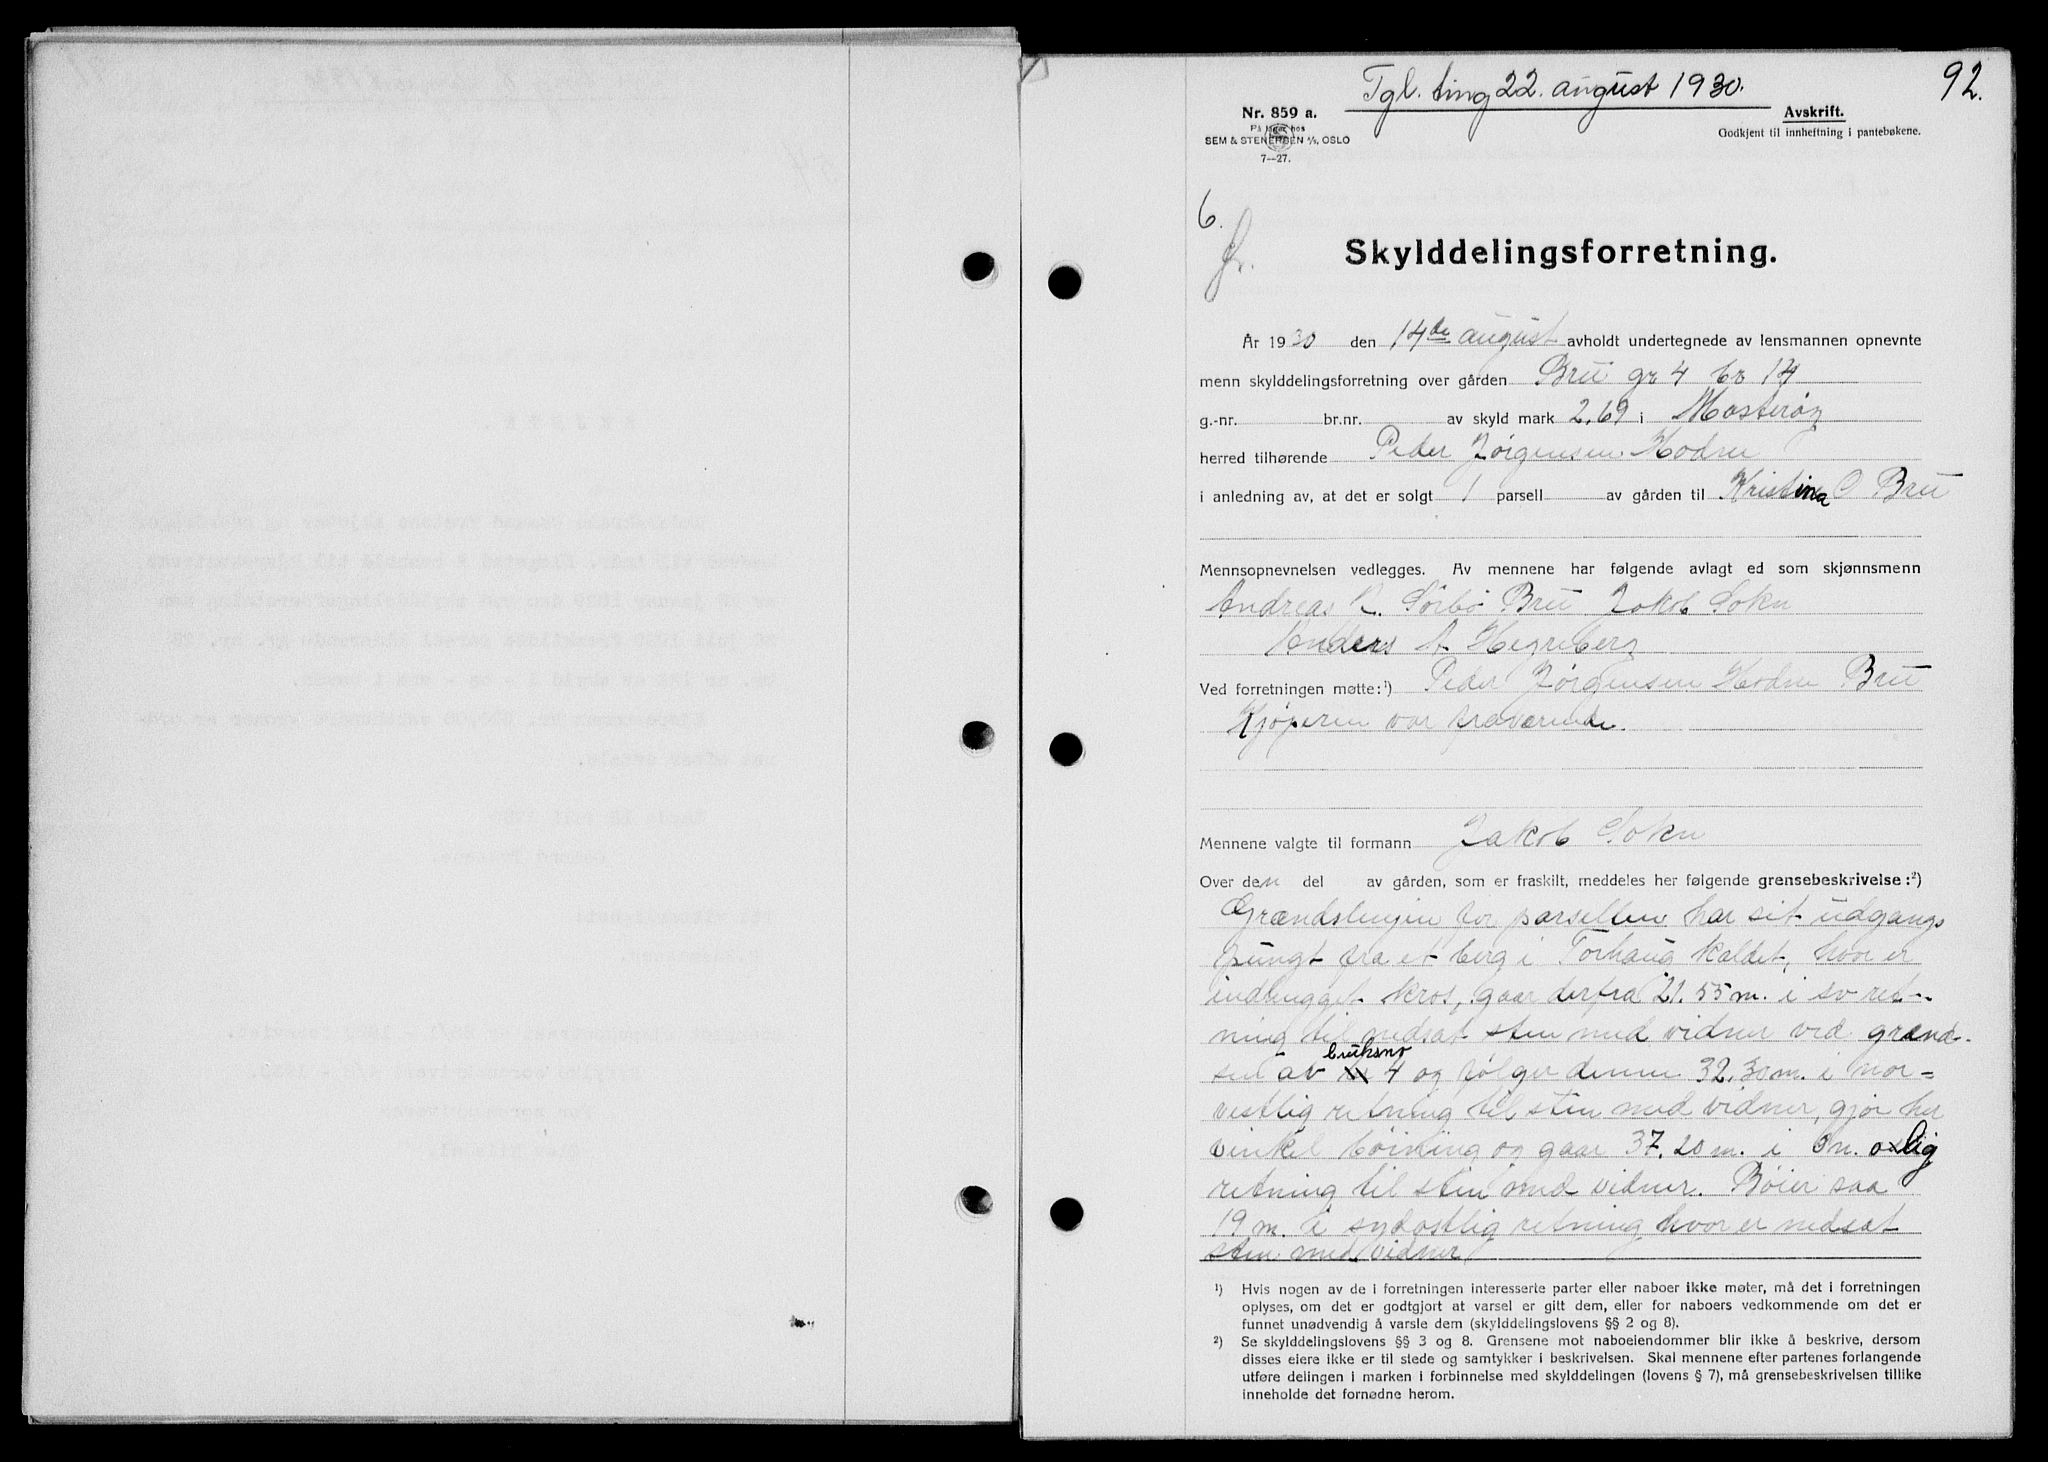 Tgl. ting 22. august 1930.
92.
Nr. 859 a.
Avskrift.
På lager hos
Godkjent til innheftning i pantebøkene.
SEM & STENERSEN A/S, OSLO
7—27.
6.
Skylddelingsforretning.
År 1930 den 14de august avholdt undertegnede av lensmannen opnevnte
menn skylddelingsforretning over gården Bru gr 4 br 14
g.-nr. br.nr. av skyld mark 2,69 i Mosterøy
herred tilhørende Peder Jørgensen Hodne
i anledning av, at det er solgt 1 parsell av gården til Kristina O Bru
Mennsopnevnelsen vedlegges. Av mennene har følgende avlagt ed som skjønnsmenn
Andreas K. Sörbö Bru Jakob Sokn
Anders A Hegreberg
Ved forretningen møtte:¹) Peder Jørgensen Hodne Bru
Kjøperen var fraværende.
Mennene valgte til formann Jakob Sokn
Over den del av gården, som er fraskilt, meddeles her følgende grensebeskrivelse:²)
Grændslinjen for parsellen har sit udgangs
pungt fra et berg i Torhaug kaldet, hvor er
indhugget kros, gaar derfra 21.55 m. i sv ret-
ning til nedsat sten med vidner ved grænd-
sen av bruksno 4 og følger denne 32,30 m. i nor-
vestlig retning til sten med vidner, gjør her
vinkel bøining og gaar 37.20 m. i n. oslig
retning til sten med vidner. Bøier saa
19 m. i sydostlig retning hvor er nedsat
sten med vidner
¹) Hvis nogen av de i forretningen interesserte parter eller naboer ikke møter, må det i forretningen
oplyses, om det er godtgjort at varsel er gitt dem, eller for naboers vedkommende om det er
funnet unødvendig å varsle dem (skylddelingslovens §§ 2 og 8).
²) Se skylddelingslovens §§ 3 og 8. Grensene mot naboeiendommer blir ikke å beskrive, dersom
disses eiere ikke er til stede og samtykker i beskrivelsen. Skal mennene efter partenes forlangende
utføre delingen i marken i forbinnelse med skylddelingen (lovens § 7), må grensebeskrivelsen tillike
inneholde det fornødne herom.